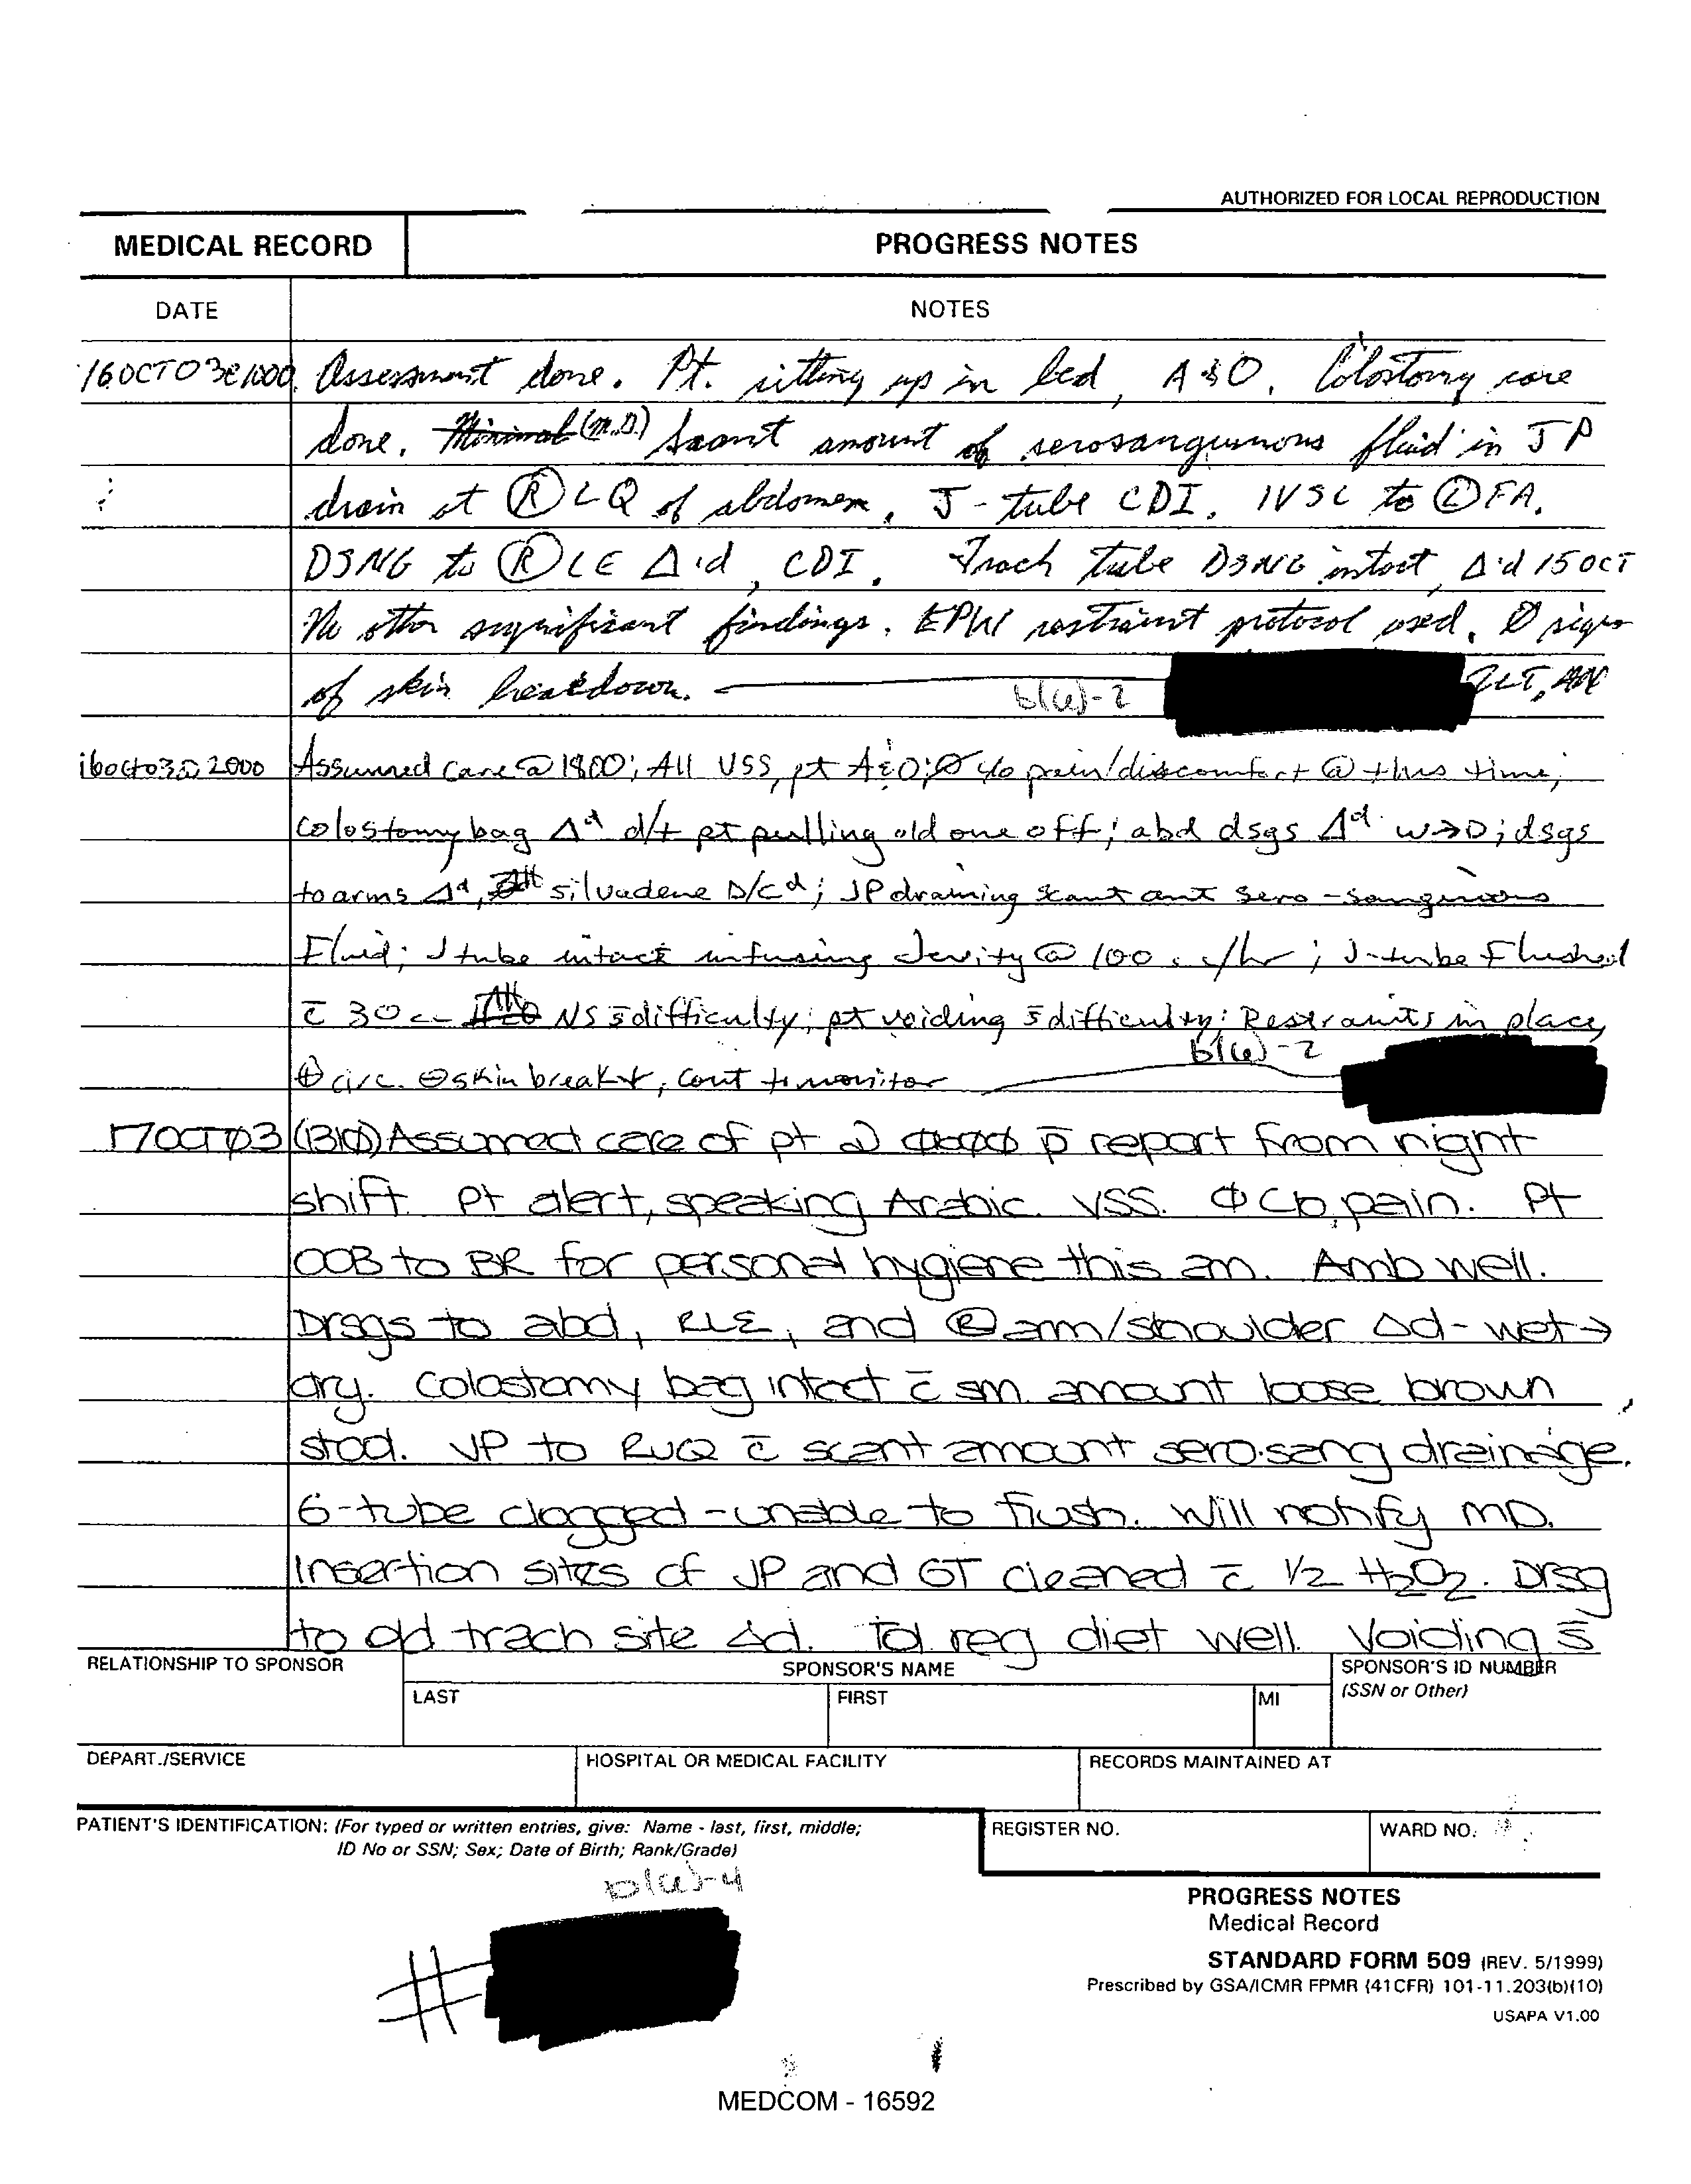 AUTHORIZED FOR LOCAL REPRODUCTION
MEDICAL RECORD
PROGRESS NOTES
DATE
NOTES
16OCT03@1000 Assessment done. Pt. sitting up in bed, A&O. Colostomy care
done. Minimal (M.D.) Scant amount of serosanguinous fluid in JP
drain at Ⓡ LQ of abdomen. J-tube CDI. IVSL to Ⓛ FA.
DSNG to Ⓡ LE Δ'd, CDI. Trach tube DSNG intact, Δ'd 15OCT
No other significant findings. EPW restraint protocol used. Ø signs
of skin breakdown.
b(6)-2
2LT, AN
16Oct03@2000 Assumed care @ 1800; All VSS, pt A&O; Ø c/o pain/discomfort @ this time;
colostomy bag Δd d/t pt pulling old one off; abd dsgs Δd w→D; dsgs
to arms Δd, silvadene D/Cd; JP draining scant amt sero-sanginous
Fluid; J tube intact infusing Jevity @ 100 cc/hr; J-tube Flushed
c̄ 30cc NS s̄ difficulty; pt voiding s̄ difficulty; Restraints in place,
⊕ circ. ⊖ skin break↓, cont to monitor
b(6)-2
17OCT03 (1310) Assumed care of pt @ p̄ report from night
shift. Pt alert, speaking Arabic. VSS. Ø C/o pain. Pt
OOB to BR for personal hygiene this am. Amb well.
Drsgs to abd, RLE, and Ⓡ arm/shoulder Δd - wet→
dry. Colostomy bag intact c̄ sm amount loose brown
stool. JP to RUQ c̄ scant amount sero-sang drainage.
G-tube clogged - unable to flush. Will notify MD.
Insertion sites of JP and GT cleaned c̄ 1/2 H2O2. Drsg
to old trach site Δd. Tol reg diet well. Voiding s̄
RELATIONSHIP TO SPONSOR
SPONSOR'S NAME
SPONSOR'S ID NUMBER
(SSN or Other)
LAST
FIRST
MI
DEPART./SERVICE
HOSPITAL OR MEDICAL FACILITY
RECORDS MAINTAINED AT
PATIENT'S IDENTIFICATION: (For typed or written entries, give: Name - last, first, middle;
ID No or SSN; Sex; Date of Birth; Rank/Grade)
REGISTER NO.
WARD NO.
b(6)-4
#
PROGRESS NOTES
Medical Record
STANDARD FORM 509 (REV. 5/1999)
Prescribed by GSA/ICMR FPMR (41CFR) 101-11.203(b)(10)
USAPA V1.00
MEDCOM - 16592